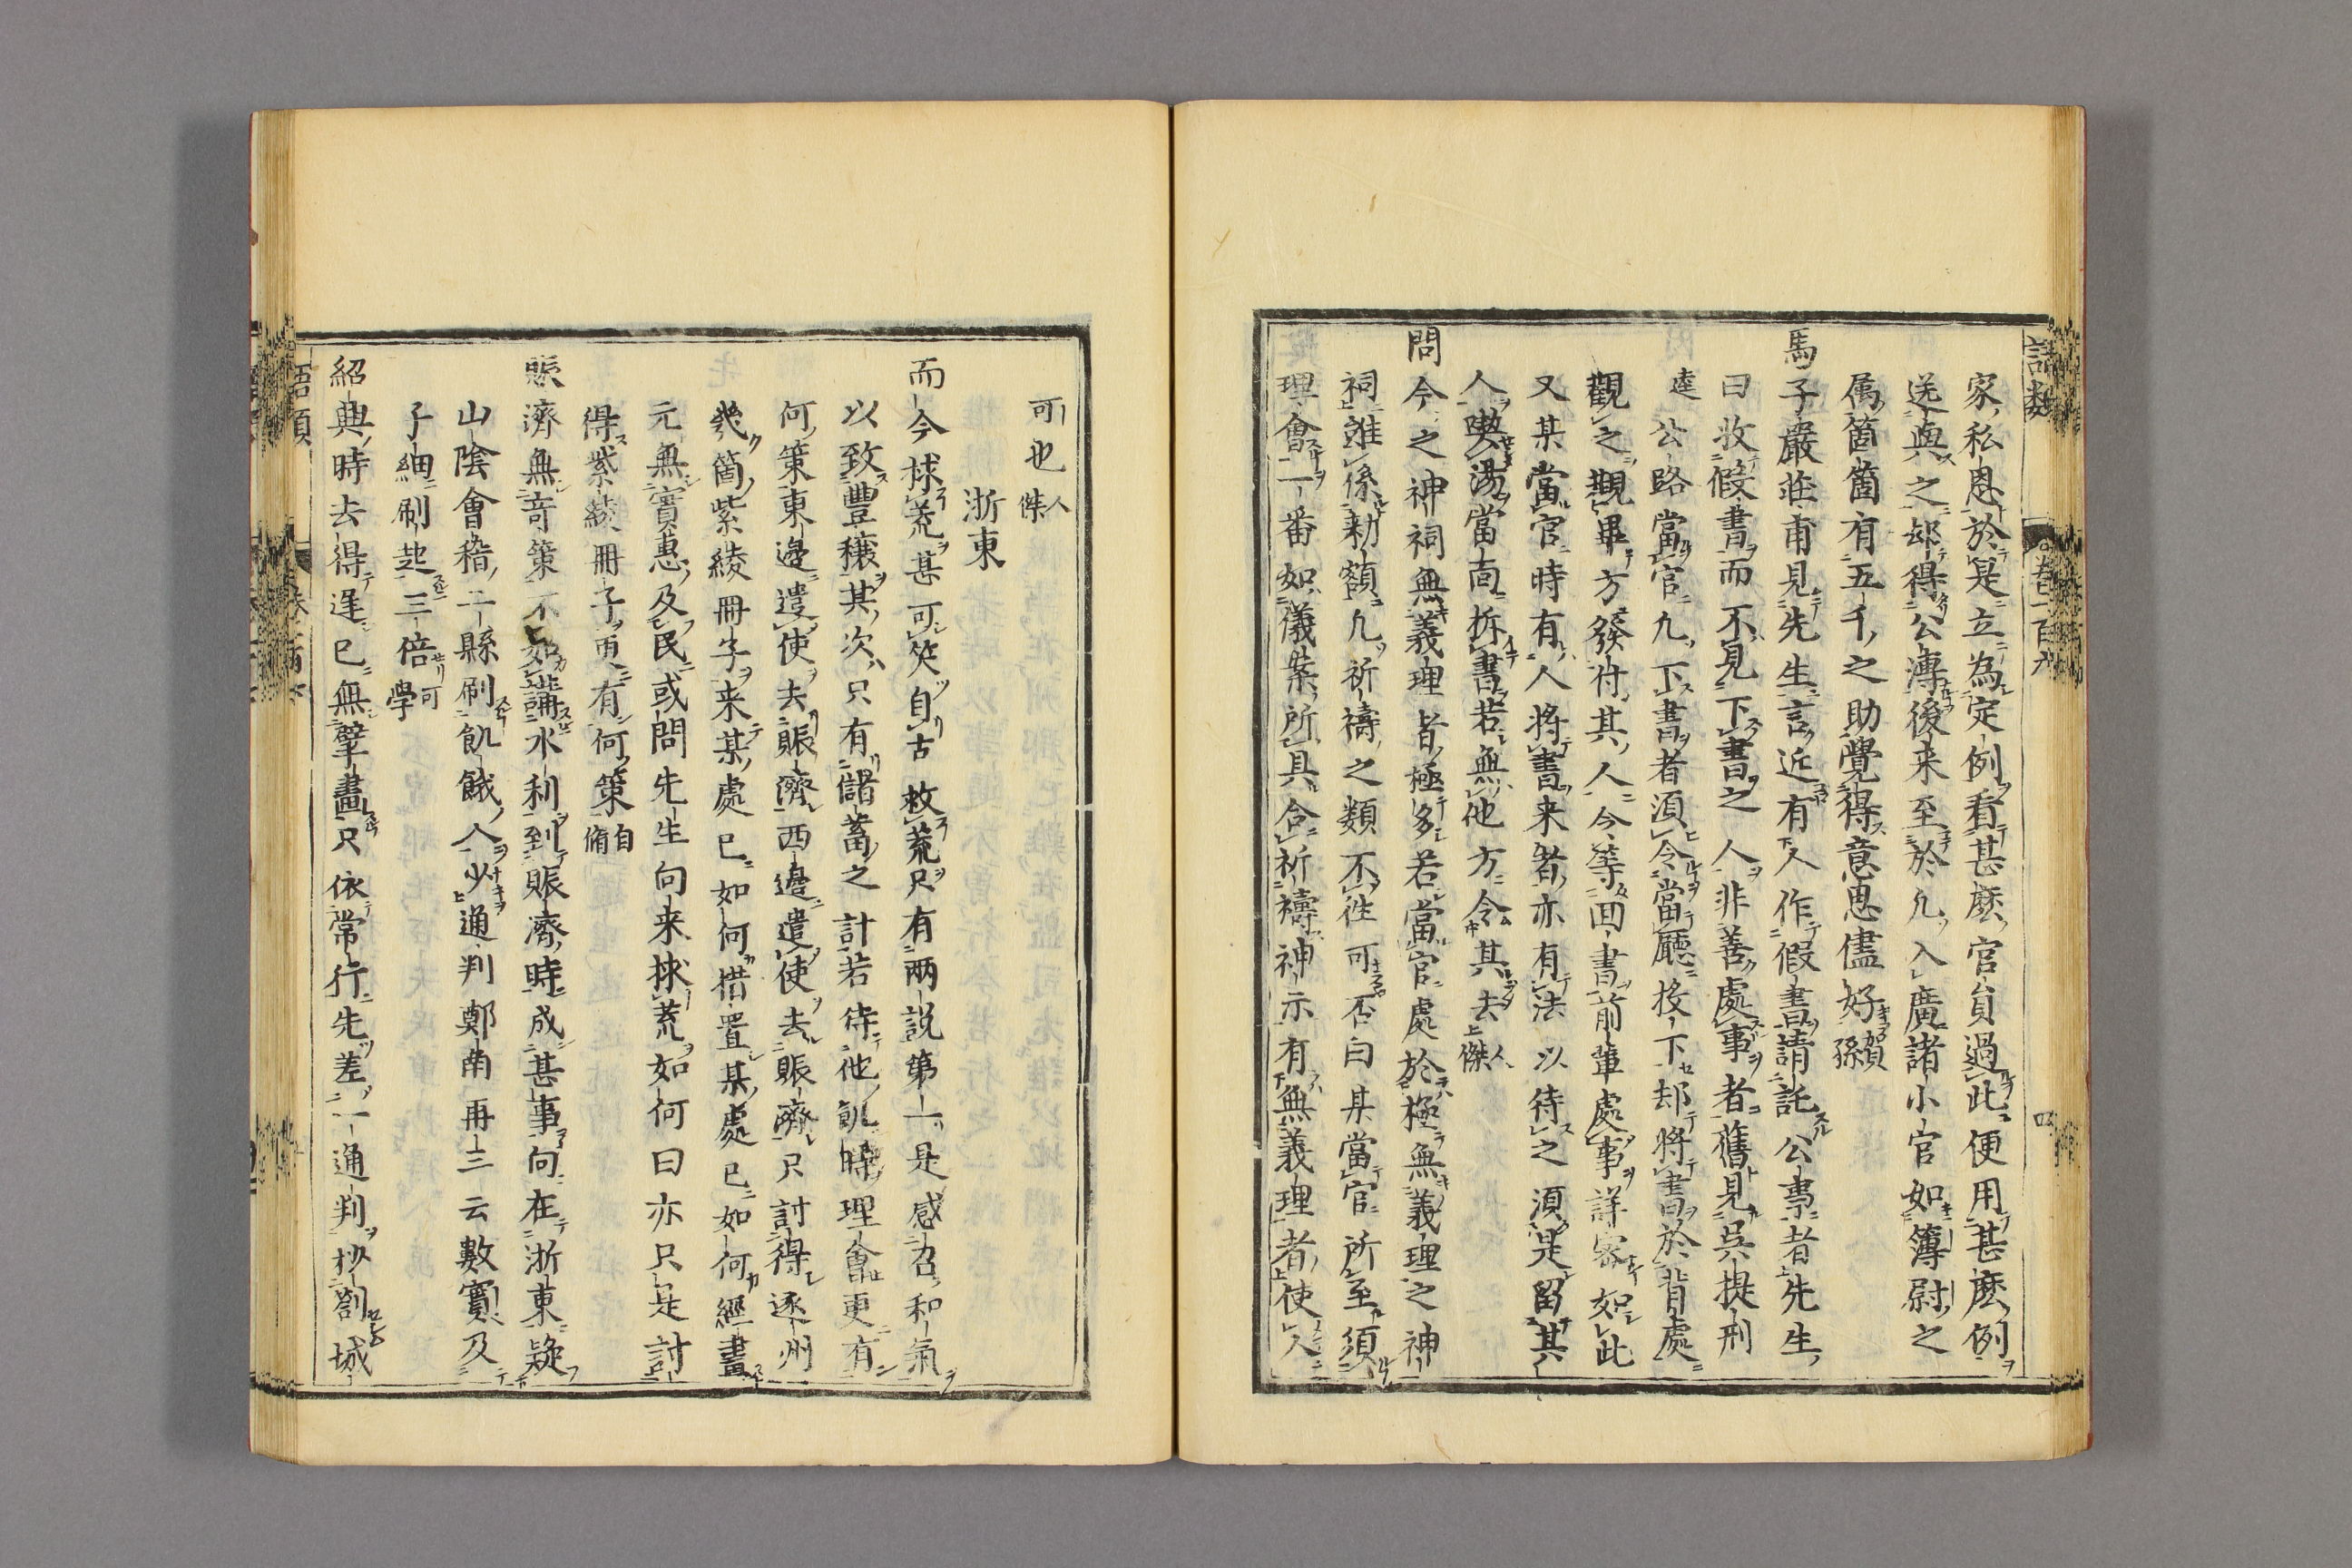 家私恩於是立為定例看甚麼官員過此便用甚麼例
送與之却得公溥後来至於凡入廣諸小官如簿尉之
属箇箇有五千之助覺得意思儘好賀孫
馬子嚴莊甫見先生言近有人作假書請託公事者先生
曰收假書而不見下書之人非善處事者舊見吳提刑
逵公路當官凡下書者須令當廳投下却將書於背處
觀之觀畢方發付其人令等囬書前輩處事詳密如此
又某當官時有人將書来者亦有法以待之須是留其
人喫湯當面拆書若無他方令其去人傑
問今之神祠無義理者極多若當官處於極無義理之神
祠雖係勑額凡祈禱之類不徃可否曰某當官所至須
理會一番如儀案所具合祈禱神示有無義理者使人
可也人傑
浙東
而今捄荒甚可笑自古救荒只有兩説第一是感召和氣
以致豐穰其次只有儲蓄之計若待他飢時理會更有
何策東邊遣使去賑濟西邊遣使去賑濟只討得逐州
幾箇紫綾冊子来某處已如何措置某處已如何經畫
元無實惠及民或問先生向来捄荒如何曰亦只是討
得紫綾冊子更有何策自脩
賑濟無奇策不如講水利到賑濟時成甚事向在浙東疑
山陰會稽二縣刷飢餓人少通判鄭南再三云數實及
子細刷起三倍可學
紹興時去得遲已無擘畫只依常行先差一通判抄劄城